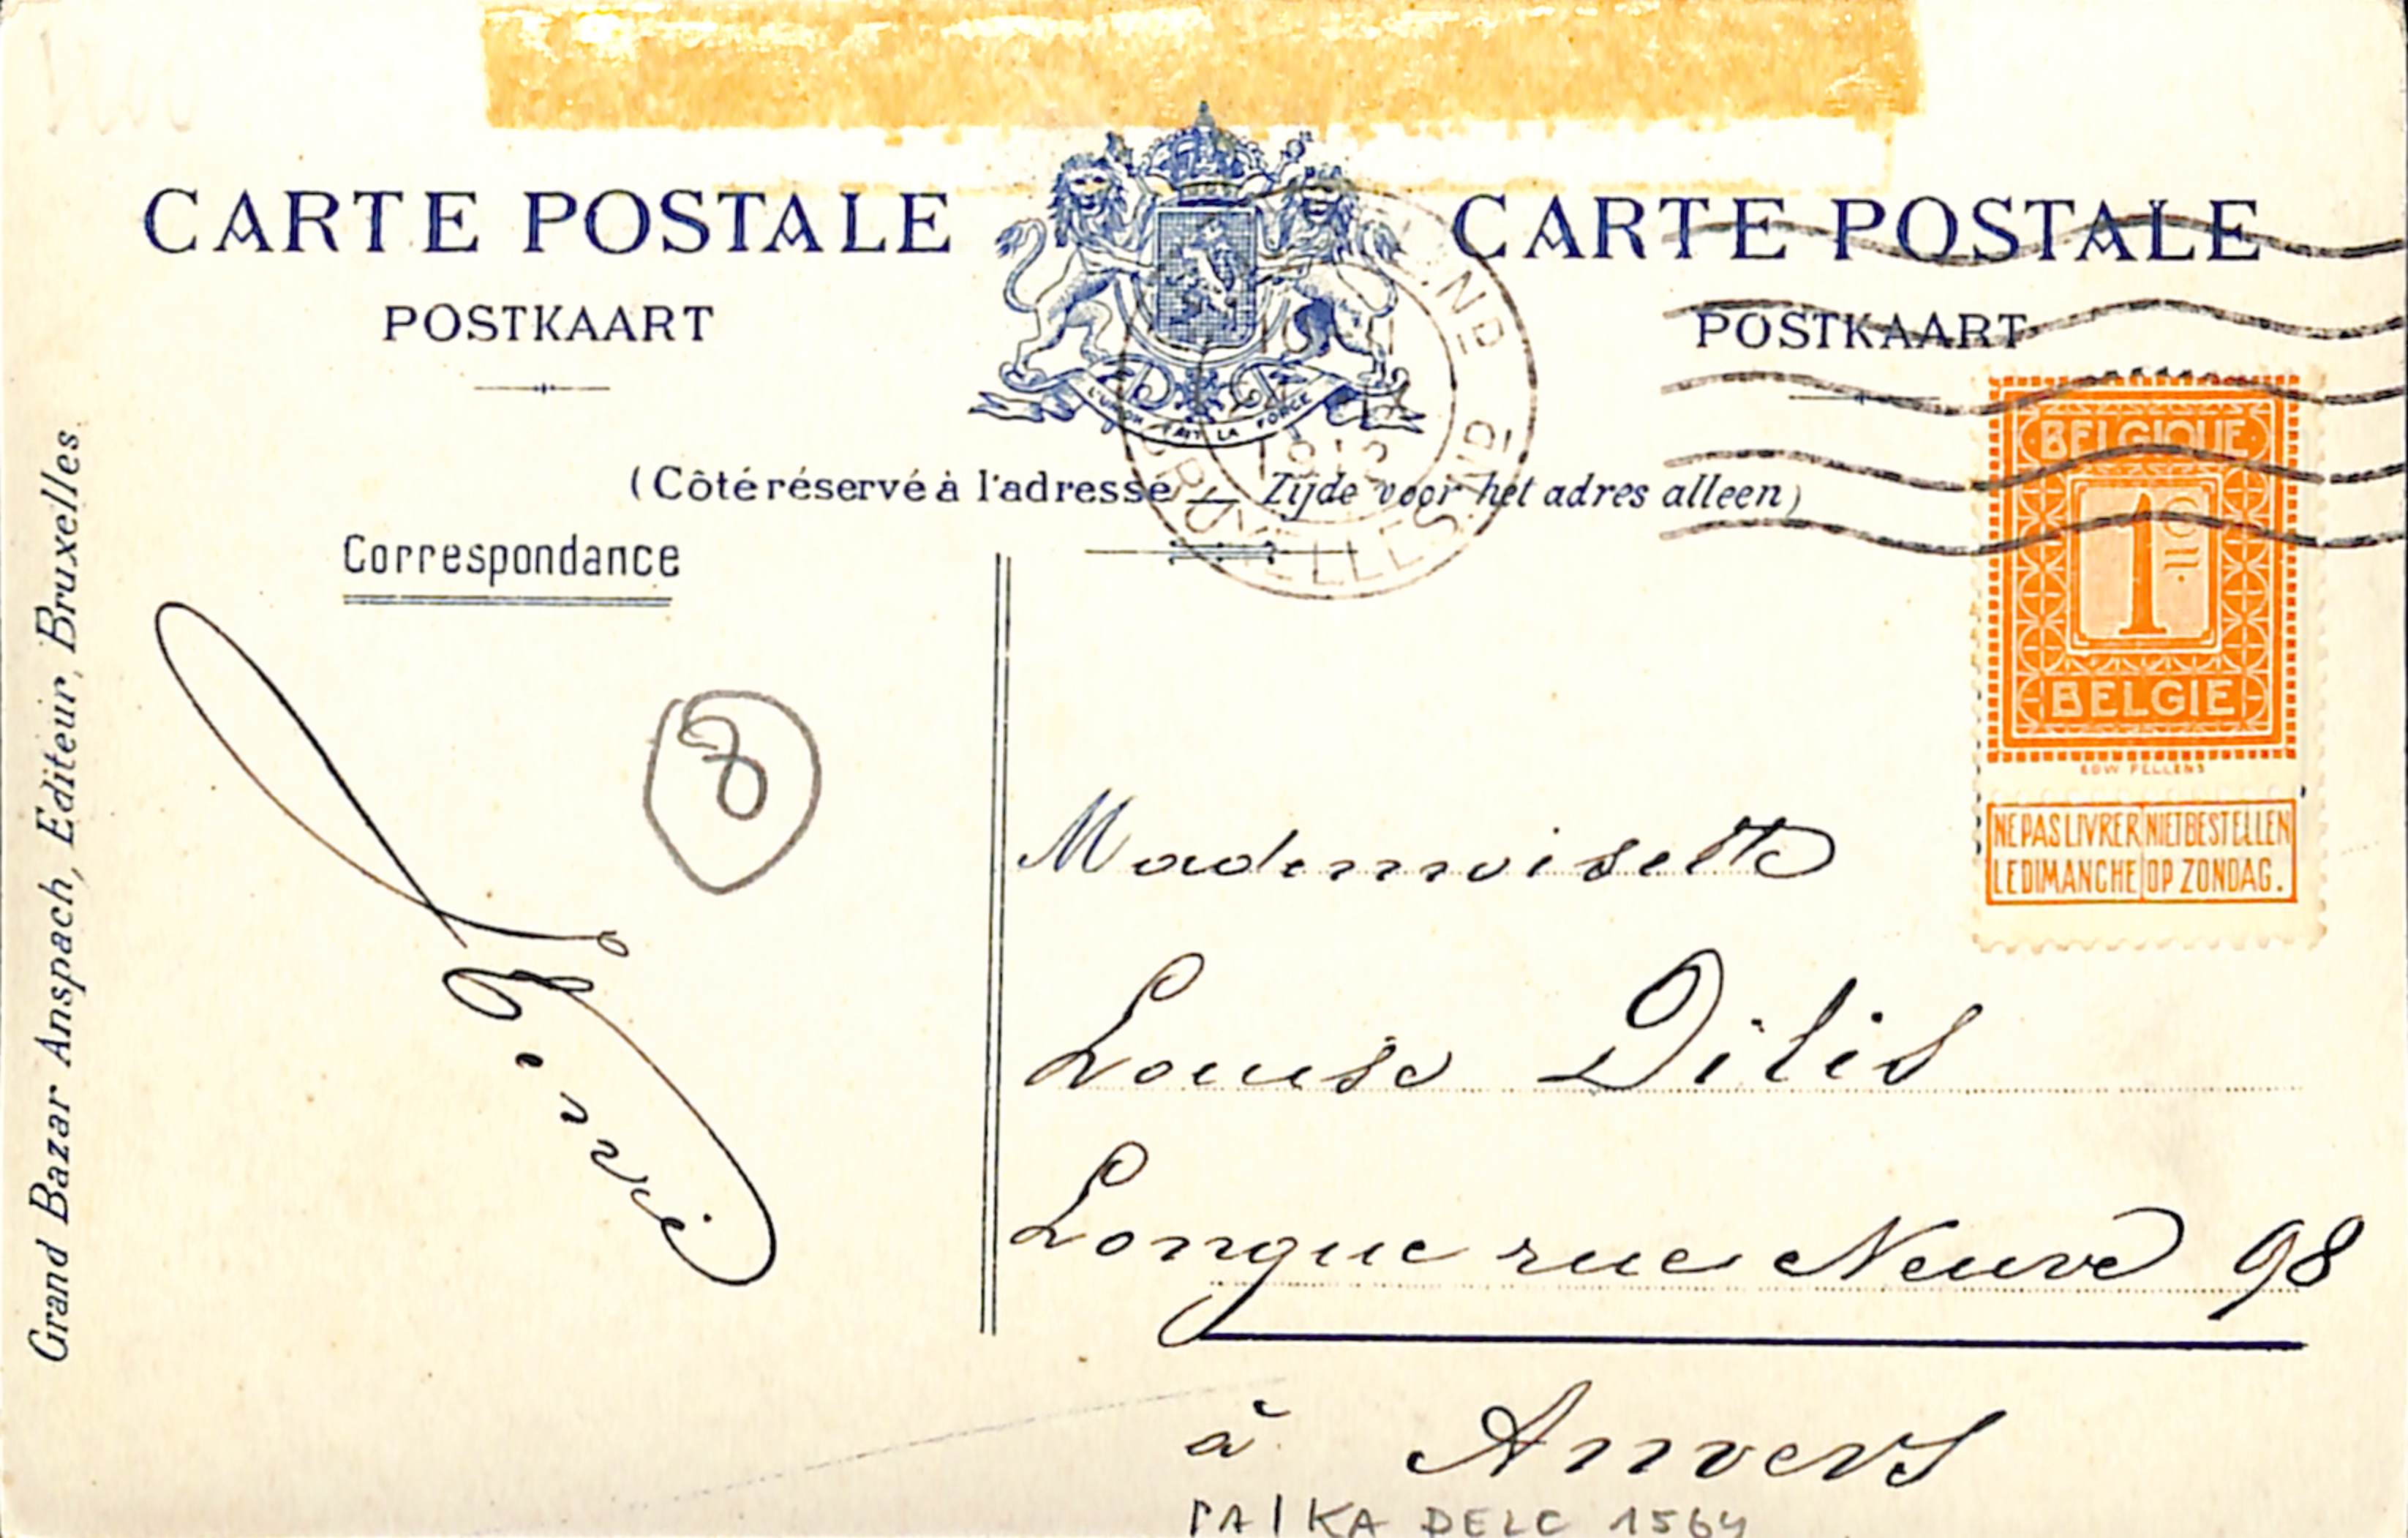 CARTE POSTALE
CARTE POSTALE
POSTKAART
POSTKAART
L'UNION FAIT LA FORCE
(Côté réservé à l'adresse — Zijde voor het adres alleen)
BRUXELLES
1912
Correspondance
BELGIQUE
1 C
BELGIE
EDW PELLENS
NE PAS LIVRER LE DIMANCHE
NIET BESTELLEN OP ZONDAG.
8
Mademoiselle
Louise Dilis
Longue rue Neuve 98
à Anvers
DELC 1564
Grand Bazar Anspach, Editeur, Bruxelles.